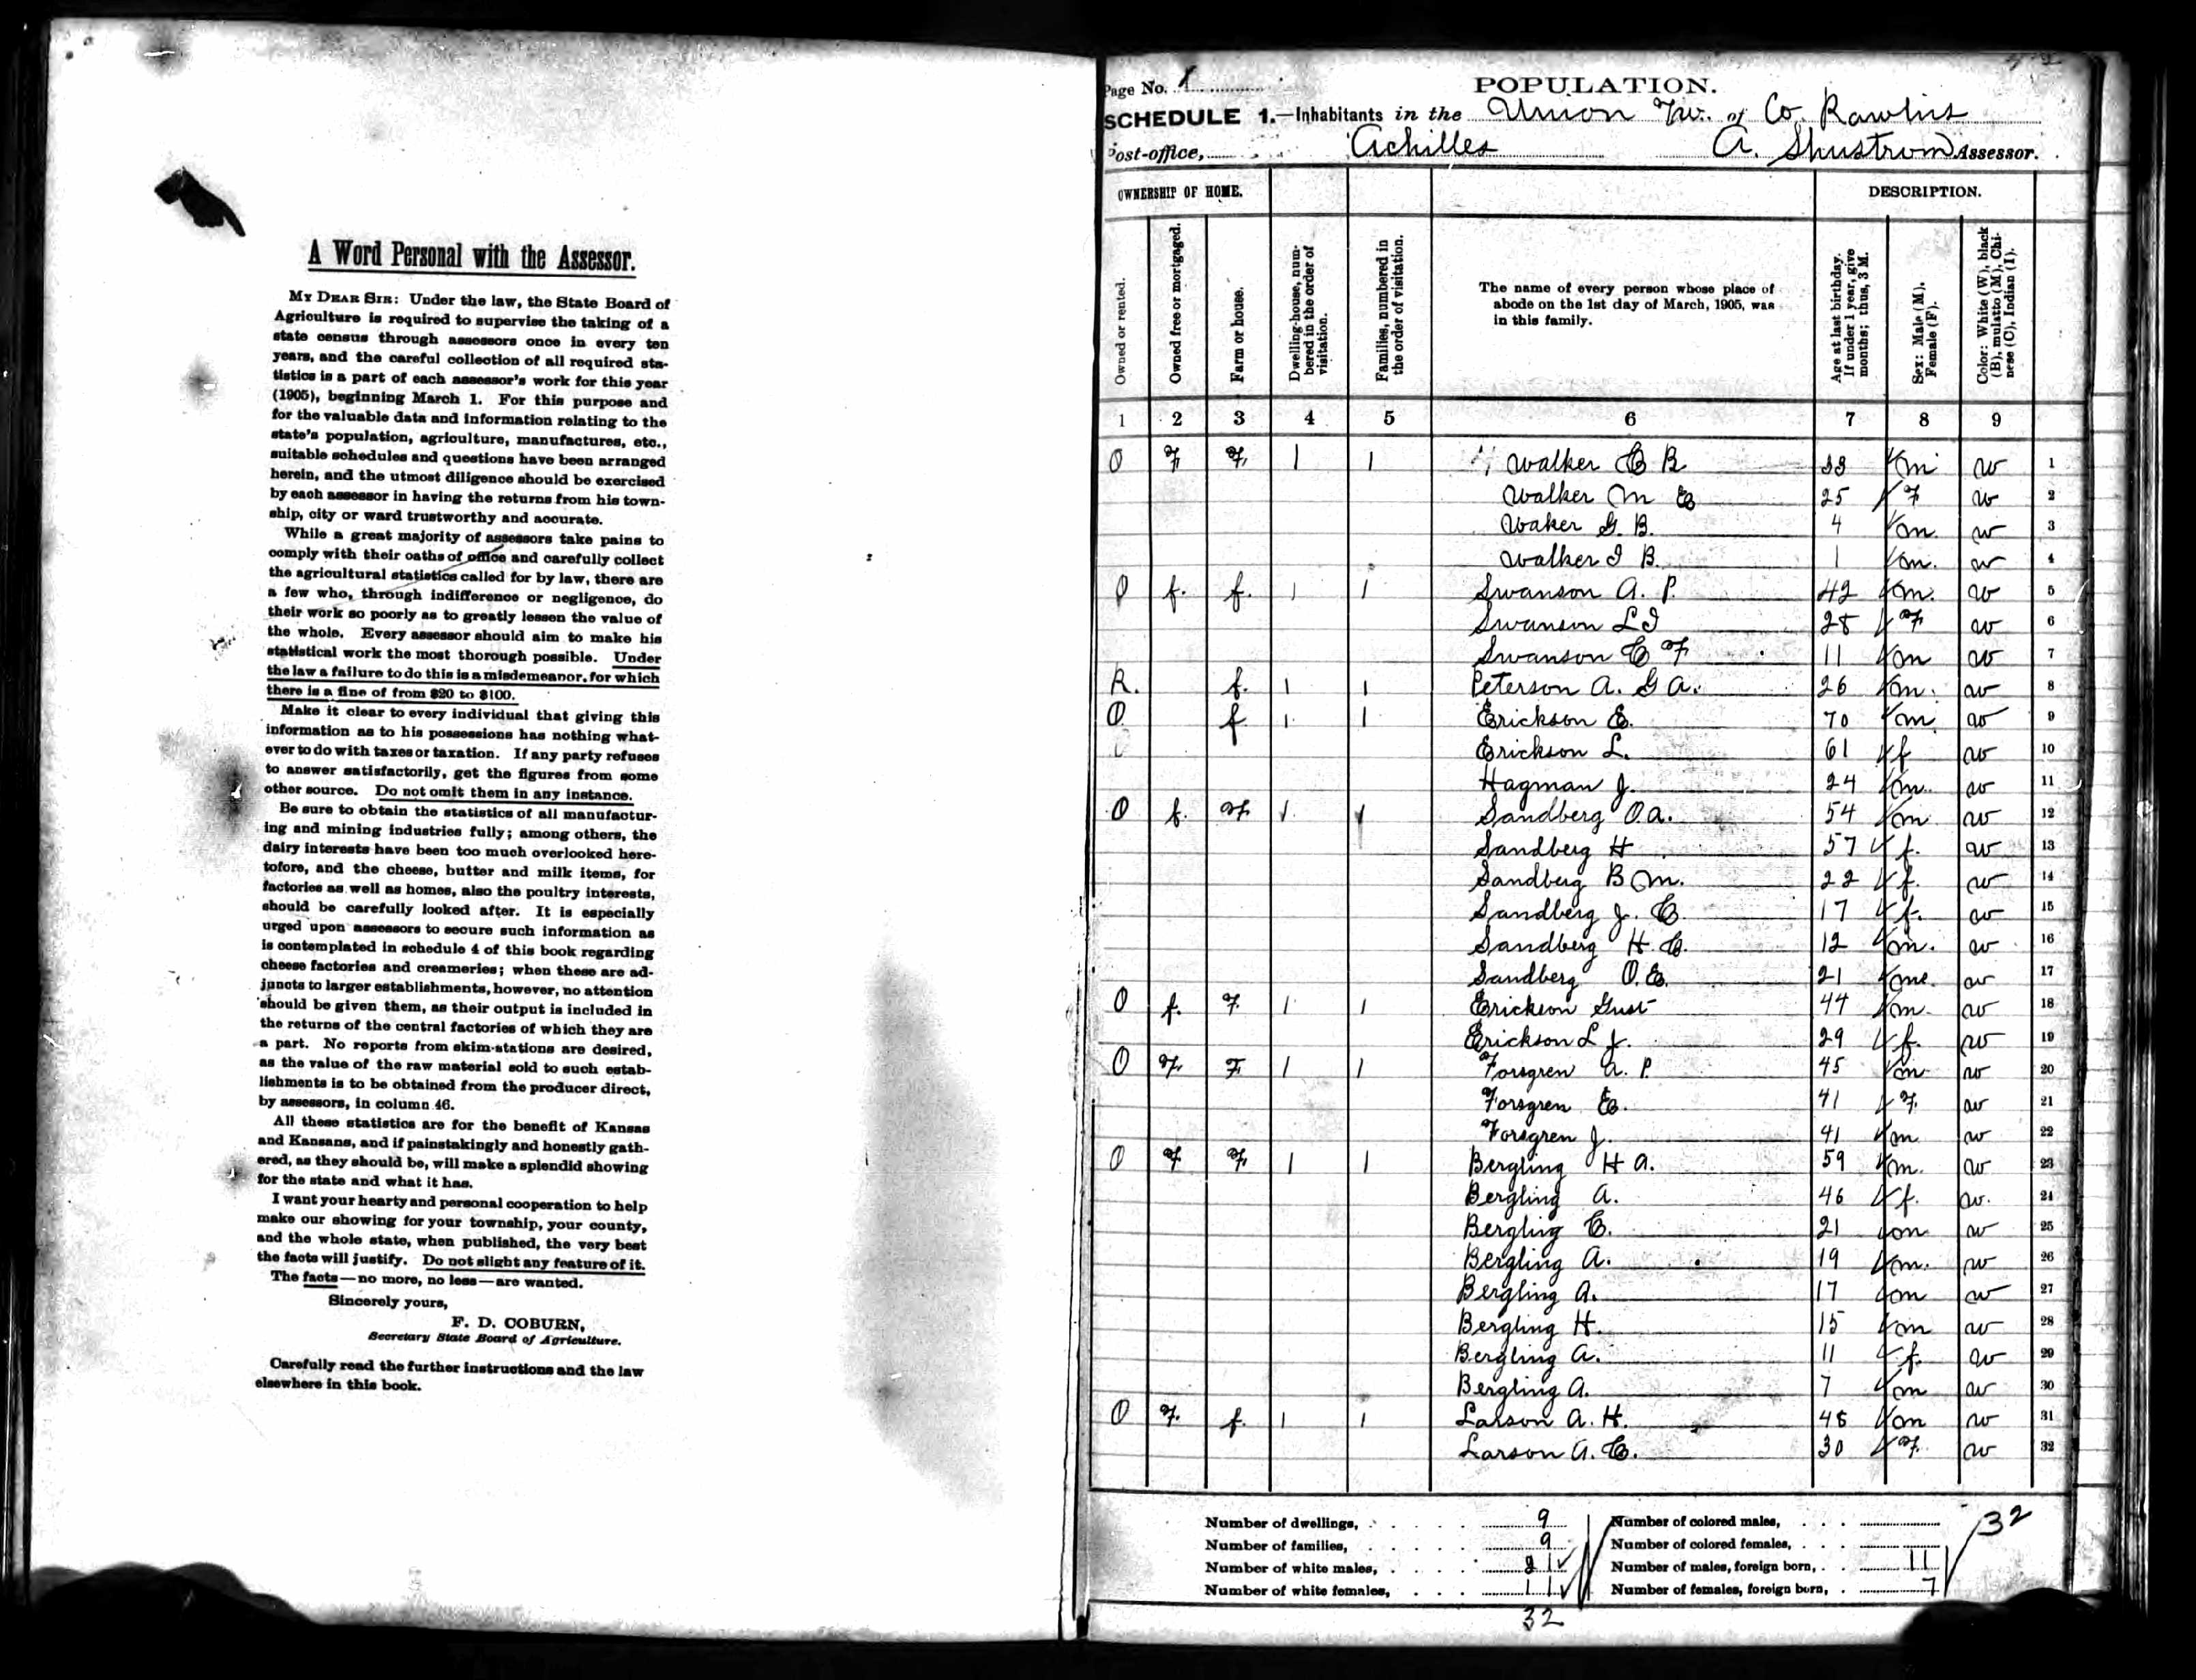 A Word Personal with the Assessor.
MY DEAR SIR: Under the law, the State Board of
Agriculture is required to supervise the taking of a
state census through assessors once in every ten
years, and the careful collection of all required sta-
tistics is a part of each assessor's work for this year
(1905), beginning March 1. For this purpose and
for the valuable data and information relating to the
state's population, agriculture, manufactures, etc.,
suitable schedules and questions have been arranged
herein, and the utmost diligence should be exercised
by each assessor in having the returns from his town-
ship, city or ward trustworthy and accurate.
While a great majority of assessors take pains to
comply with their oaths of office and carefully collect
the agricultural statistics called for by law, there are
a few who, through indifference or negligence, do
their work so poorly as to greatly lessen the value of
the whole. Every assessor should aim to make his
statistical work the most thorough possible. Under
the law a failure to do this is a misdemeanor, for which
there is a fine of from $20 to $100.
Make it clear to every individual that giving this
information as to his possessions has nothing what-
ever to do with taxes or taxation. If any party refuses
to answer satisfactorily, get the figures from some
other source. Do not omit them in any instance.
Be sure to obtain the statistics of all manufactur-
ing and mining industries fully; among others, the
dairy interests have been too much overlooked here-
tofore, and the cheese, butter and milk items, for
factories as well as homes, also the poultry interests,
should be carefully looked after. It is especially
urged upon assessors to secure such information as
is contemplated in schedule 4 of this book regarding
cheese factories and creameries; when these are ad-
juncts to larger establishments, however, no attention
should be given them, as their output is included in
the returns of the central factories of which they are
a part. No reports from skim-stations are desired,
as the value of the raw material sold to such estab-
lishments is to be obtained from the producer direct,
by assessors, in column 46.
All these statistics are for the benefit of Kansas
and Kansans, and if painstakingly and honestly gath-
ered, as they should be, will make a splendid showing
for the state and what it has.
I want your hearty and personal cooperation to help
make our showing for your township, your county,
and the whole state, when published, the very best
the facts will justify. Do not slight any feature of it.
The facts—no more, no less—are wanted.
Sincerely yours,
F. D. COBURN,
Secretary State Board of Agriculture.
Carefully read the further instructions and the law
elsewhere in this book.
Page No. 1
POPULATION.
SCHEDULE 1.—Inhabitants in the Union Tw. of Co. Rawlins
Post-office, Achilles A. Shustrom Assessor.
OWNERSHIP OF HOME. DESCRIPTION.
Owned or rented.
Owned free or mortgaged.
Farm or house.
Dwelling-house, num-
bered in the order of
visitation.
Families, numbered in
the order of visitation.
The name of every person whose place of
abode on the 1st day of March, 1905, was
in this family.
Age at last birthday.
If under 1 year, give
months; thus, 3 M.
Sex: Male (M),
Female (F).
Color: White (W), black
(B), mulatto (M), Chi-
nese (C), Indian (I).
1 2 3 4 5 6 7 8 9
O F F 1 1 Walker C B 33 m w 1
Walker M E 25 F w 2
Waker G. B. 4 m. w 3
Walker I B. 1 m. w 4
O f. f. 1 1 Swanson A. P. 42 m. w 5
Swanson L I 28 F w 6
Swanson C F 11 m w 7
R. f. 1 1 Peterson A. G A. 26 m. w 8
O f 1 1 Erickson E. 70 m w 9
Erickson L. 61 f w 10
Hagman J. 24 m. w 11
O f. F 1 1 Sandberg O.A. 54 m w 12
Sandberg H 57 f. w 13
Sandberg B M. 22 f. w 14
Sandberg J. C. 17 f. w 15
Sandberg H. C. 12 m. w 16
Sandberg O. E. 21 m. w 17
O f. F. 1 1 Erickson Gust 44 m. w 18
Erickson L J. 29 f. w 19
O F. F 1 1 Forsgren A. P. 45 m w 20
Forsgren E. 41 F. w 21
Forsgren J. 41 m w 22
O F F. 1 1 Bergling H A. 59 m. w 23
Bergling A. 46 f. w. 24
Bergling C. 21 m w 25
Bergling A. 19 m. w 26
Bergling A. 17 m w 27
Bergling H. 15 m w 28
Bergling A. 11 f. w 29
Bergling A. 7 m w 30
O F. f. 1 1 Larson A. H. 48 m w 31
Larson A. C. 30 F. w 32
Number of dwellings, 9 Number of colored males,
Number of families, 9 Number of colored females,
Number of white males, 21 Number of males, foreign born, 11
Number of white females, 11 Number of females, foreign born, 7
32
32